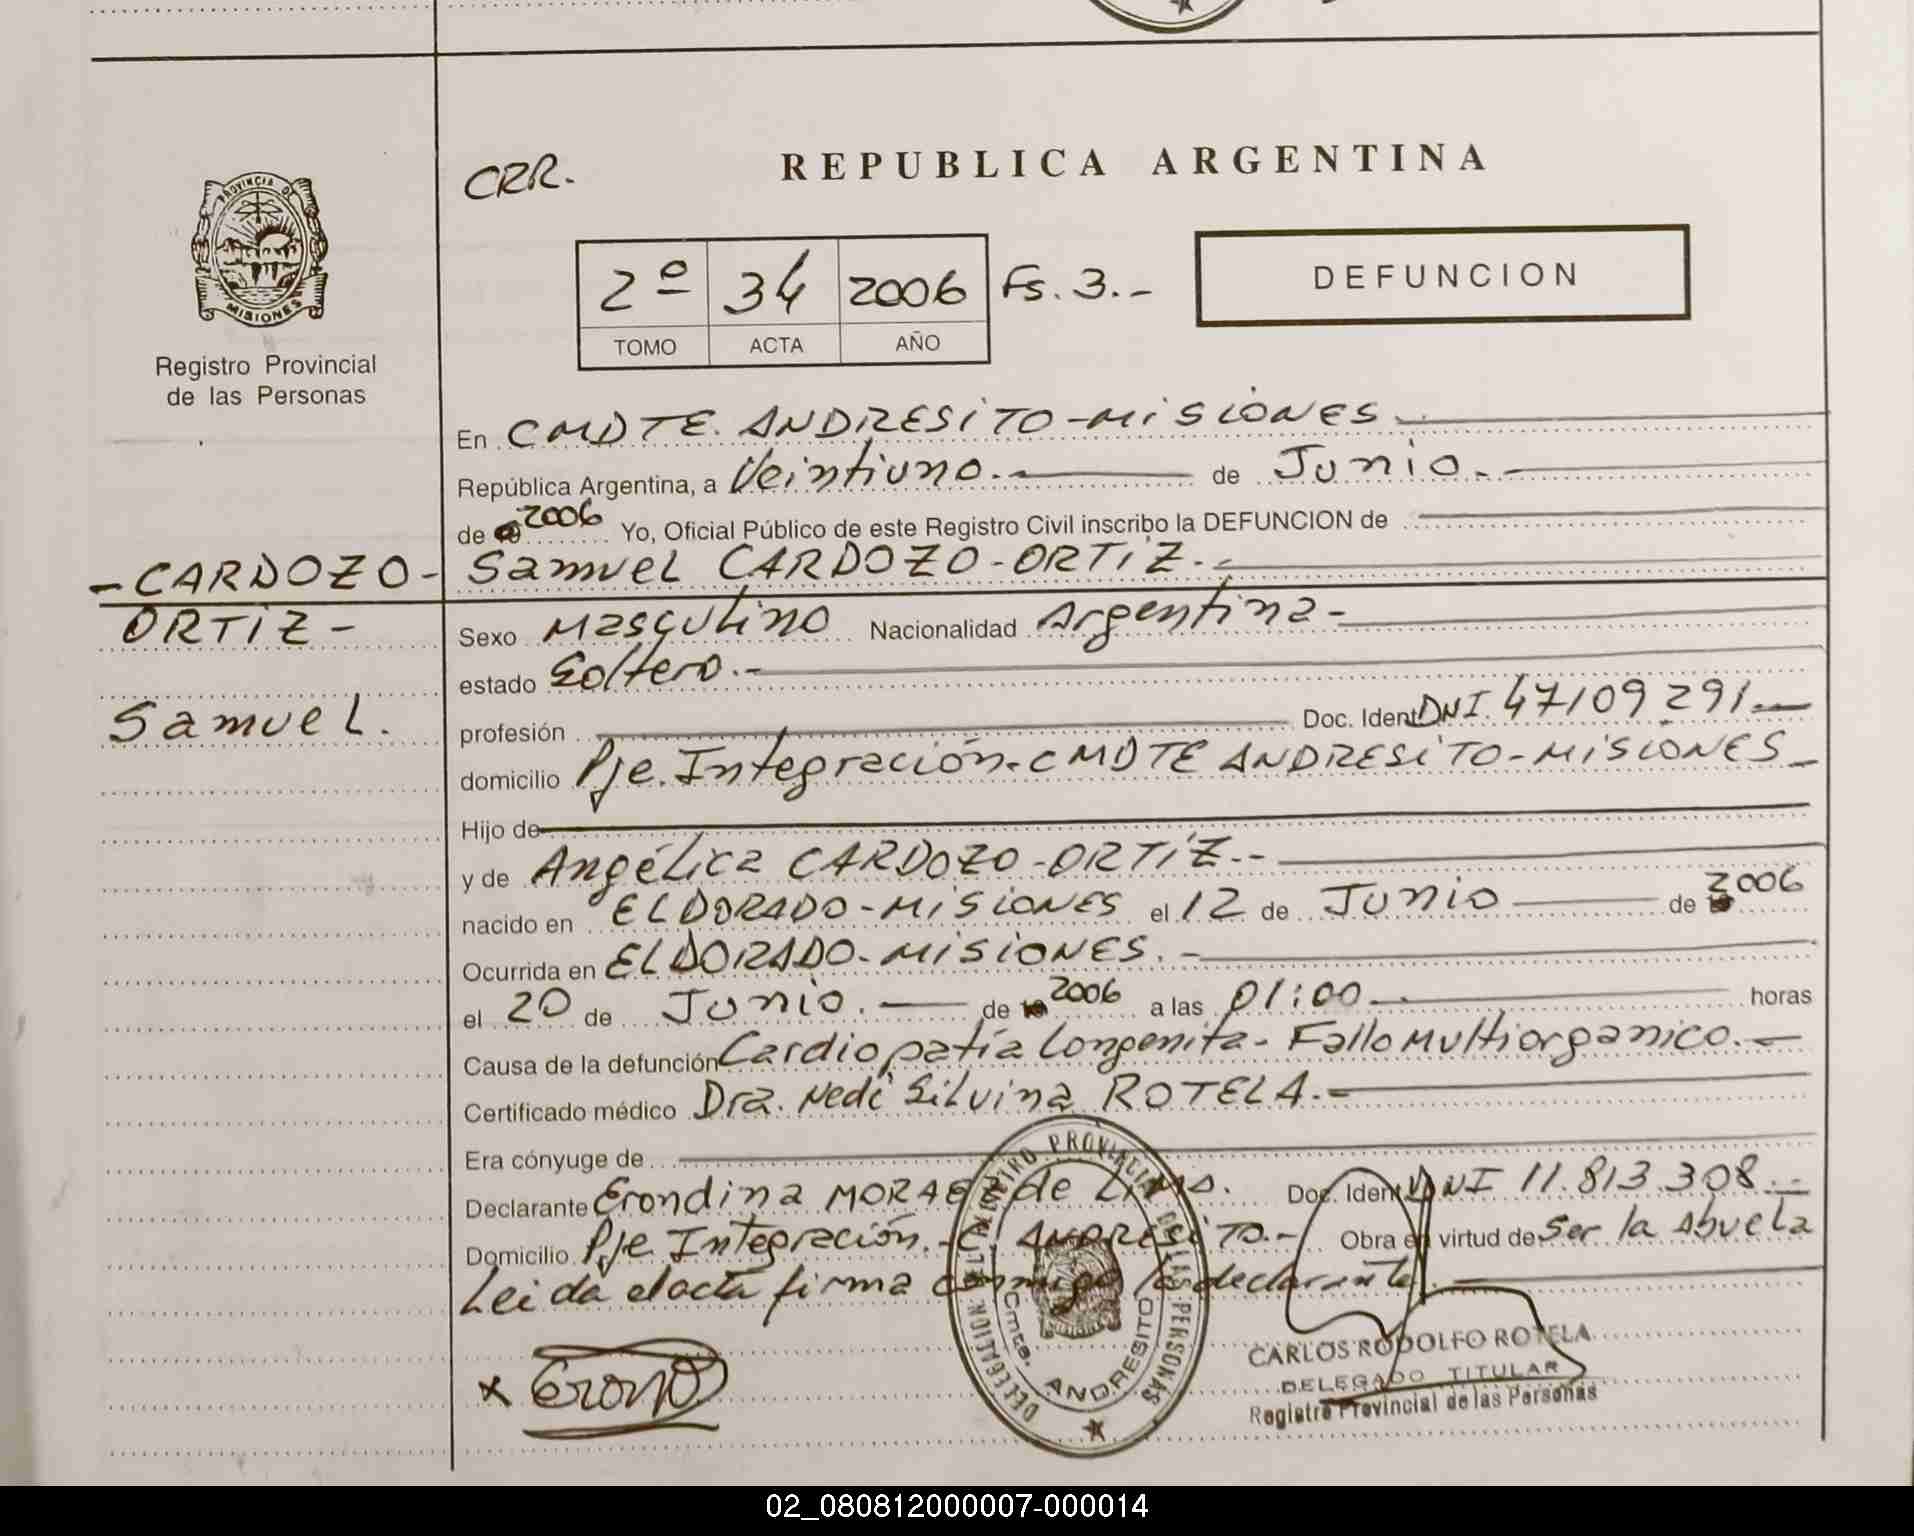 CRR.
REPUBLICA ARGENTINA
PROVINCIA DE
MISIONES
Registro Provincial
de las Personas
2º 34 2006 Fs. 3.-
TOMO ACTA AÑO
DEFUNCION
En CMDTE. ANDRESITO-MISIONES
República Argentina, a Veintiuno.- de Junio.-
de 2006 Yo, Oficial Público de este Registro Civil inscribo la DEFUNCION de
-CARDOZO- Samuel CARDOZO-ORTIZ.-
ORTIZ- Sexo Masculino Nacionalidad Argentina-
estado Soltero.-
Samuel. profesión Doc. Ident. DNI. 47109.291.-
domicilio Pje. Integración.-CMDTE ANDRESITO-MISIONES-
Hijo de
y de Angélica CARDOZO-ORTIZ.-
nacido en ELDORADO-MISIONES el 12 de Junio de 2006
Ocurrida en ELDORADO-MISIONES.-
el 20 de Junio.- de 2006 a las 01:00 horas
Causa de la defunción Cardiopatía Congenita- Fallo Multiorganico.-
Certificado médico Dra. Nedi Silvina ROTELA.-
Era cónyuge de
Declarante Erondina MORAEZ de LIMA. Doc. Ident. DNI 11.813.308.-
Domicilio Pje Integración.-C. ANDRESITO.- Obra en virtud de Ser la Abuela
Leida el acta firma conmigo la declarante.
x Erond
DELEGACION REGISTRO PROVINCIAL DE LAS PERSONAS
Cmte. ANDRESITO
CARLOS RODOLFO ROTELA
DELEGADO TITULAR
Registro Provincial de las Personas
02_080812000007-000014